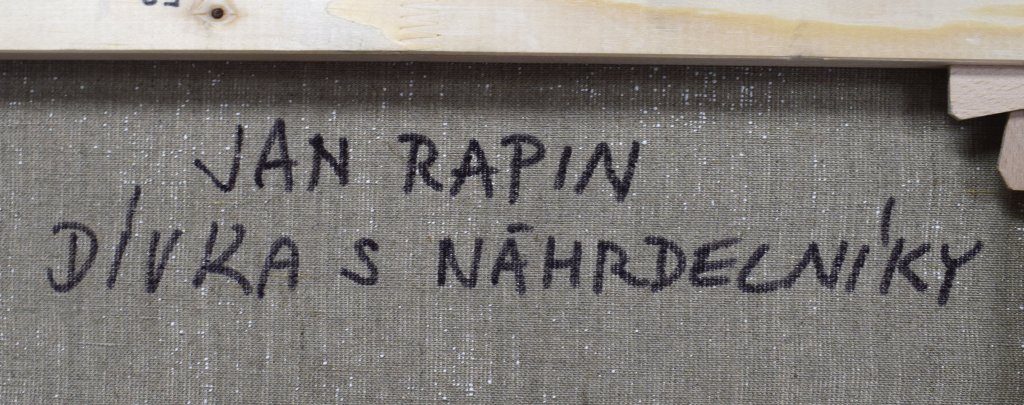 JAN RAPIN
DÍVKA S NÁHRDELNÍKY